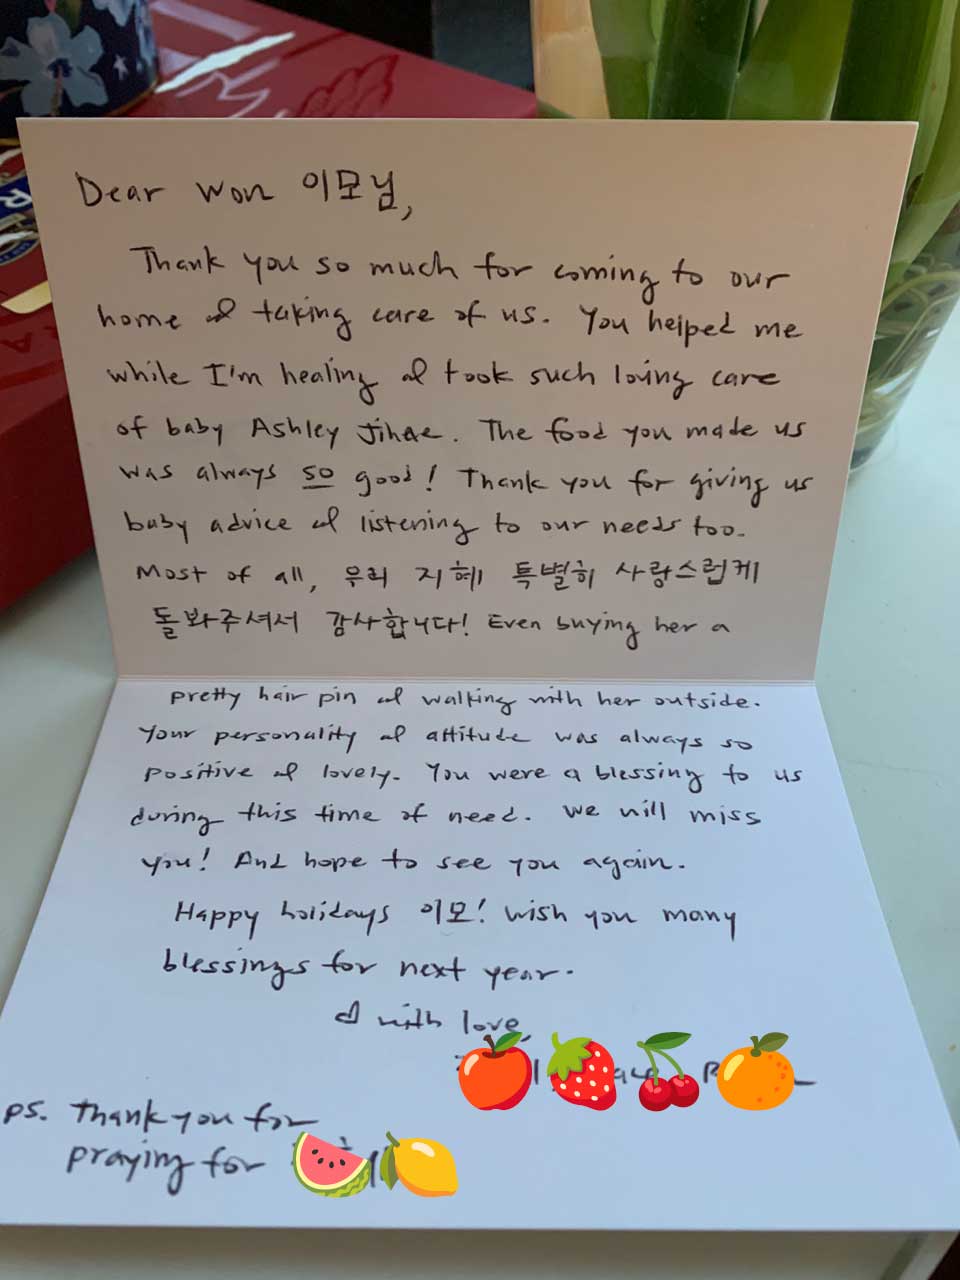 Dear Won 이모님,
Thank you so much for coming to our
home & taking care of us. You helped me
while I'm healing & took such loving care
of baby Ashley Jihae. The food you made us
was always so good! Thank you for giving us
baby advice & listening to our needs too.
Most of all, 우리 지혜 특별히 사랑스럽게
돌봐주셔서 감사합니다! Even buying her a
pretty hair pin & walking with her outside.
Your personality & attitude was always so
positive & lovely. You were a blessing to us
during this time of need. We will miss
you! And hope to see you again.
Happy holidays 이모! Wish you many
blessings for next year.
& with love,
PS. Thank you for
praying for